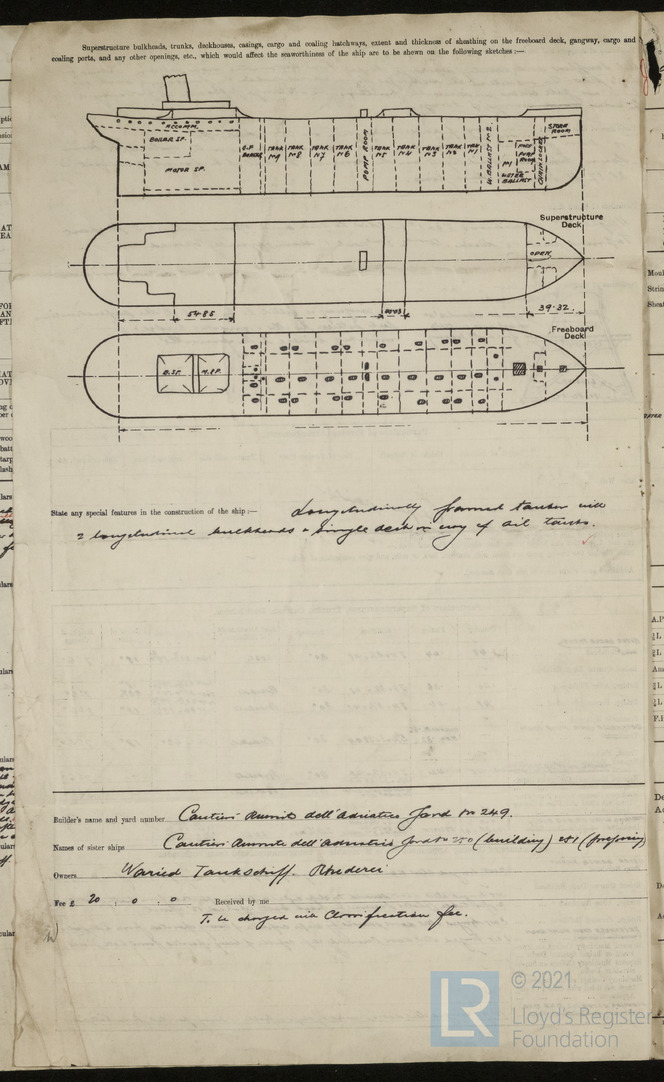 Superstructure bulkheads, trunks, deckhouses, casings, cargo and coaling hatchways, extent and thickness of sheathing on the freeboard deck, gangway, cargo and
coaling ports, and any other openings, etc., which would affect the seaworthiness of the ship are to be shewn on the following sketches :—
ACCOMM.
STORE ROOM
BOILER SP.
MOTOR SP.
TANK Nº9
TANK Nº8
TANK Nº7
TANK Nº6
PUMP ROOM
TANK Nº5
TANK Nº4
TANK Nº3
TANK Nº2
TANK Nº1
W. BALLAST Nº2
WATER BALLAST
CHAIN LOCKER
Superstructure
Deck
OPEN
54·86
39·32
Freeboard
Deck
B.SP.
M.SP.
State any special features in the construction of the ship :— Longitudinally framed tanker with
2 longitudinal bulkheads & single deck in way of oil tanks.
Builder's name and yard number Cantieri Riuniti dell'Adriatico Yard No 249.
Names of sister ships Cantieri Riuniti dell'Adriatico Yard No 250 (building) 251 (
Owners Waried Tankschiff. Rhederei
Fee £ 20 : 0 : 0 Received by me
To be charged via Classification fee.
© 2021
LR
Lloyd's Register
Foundation